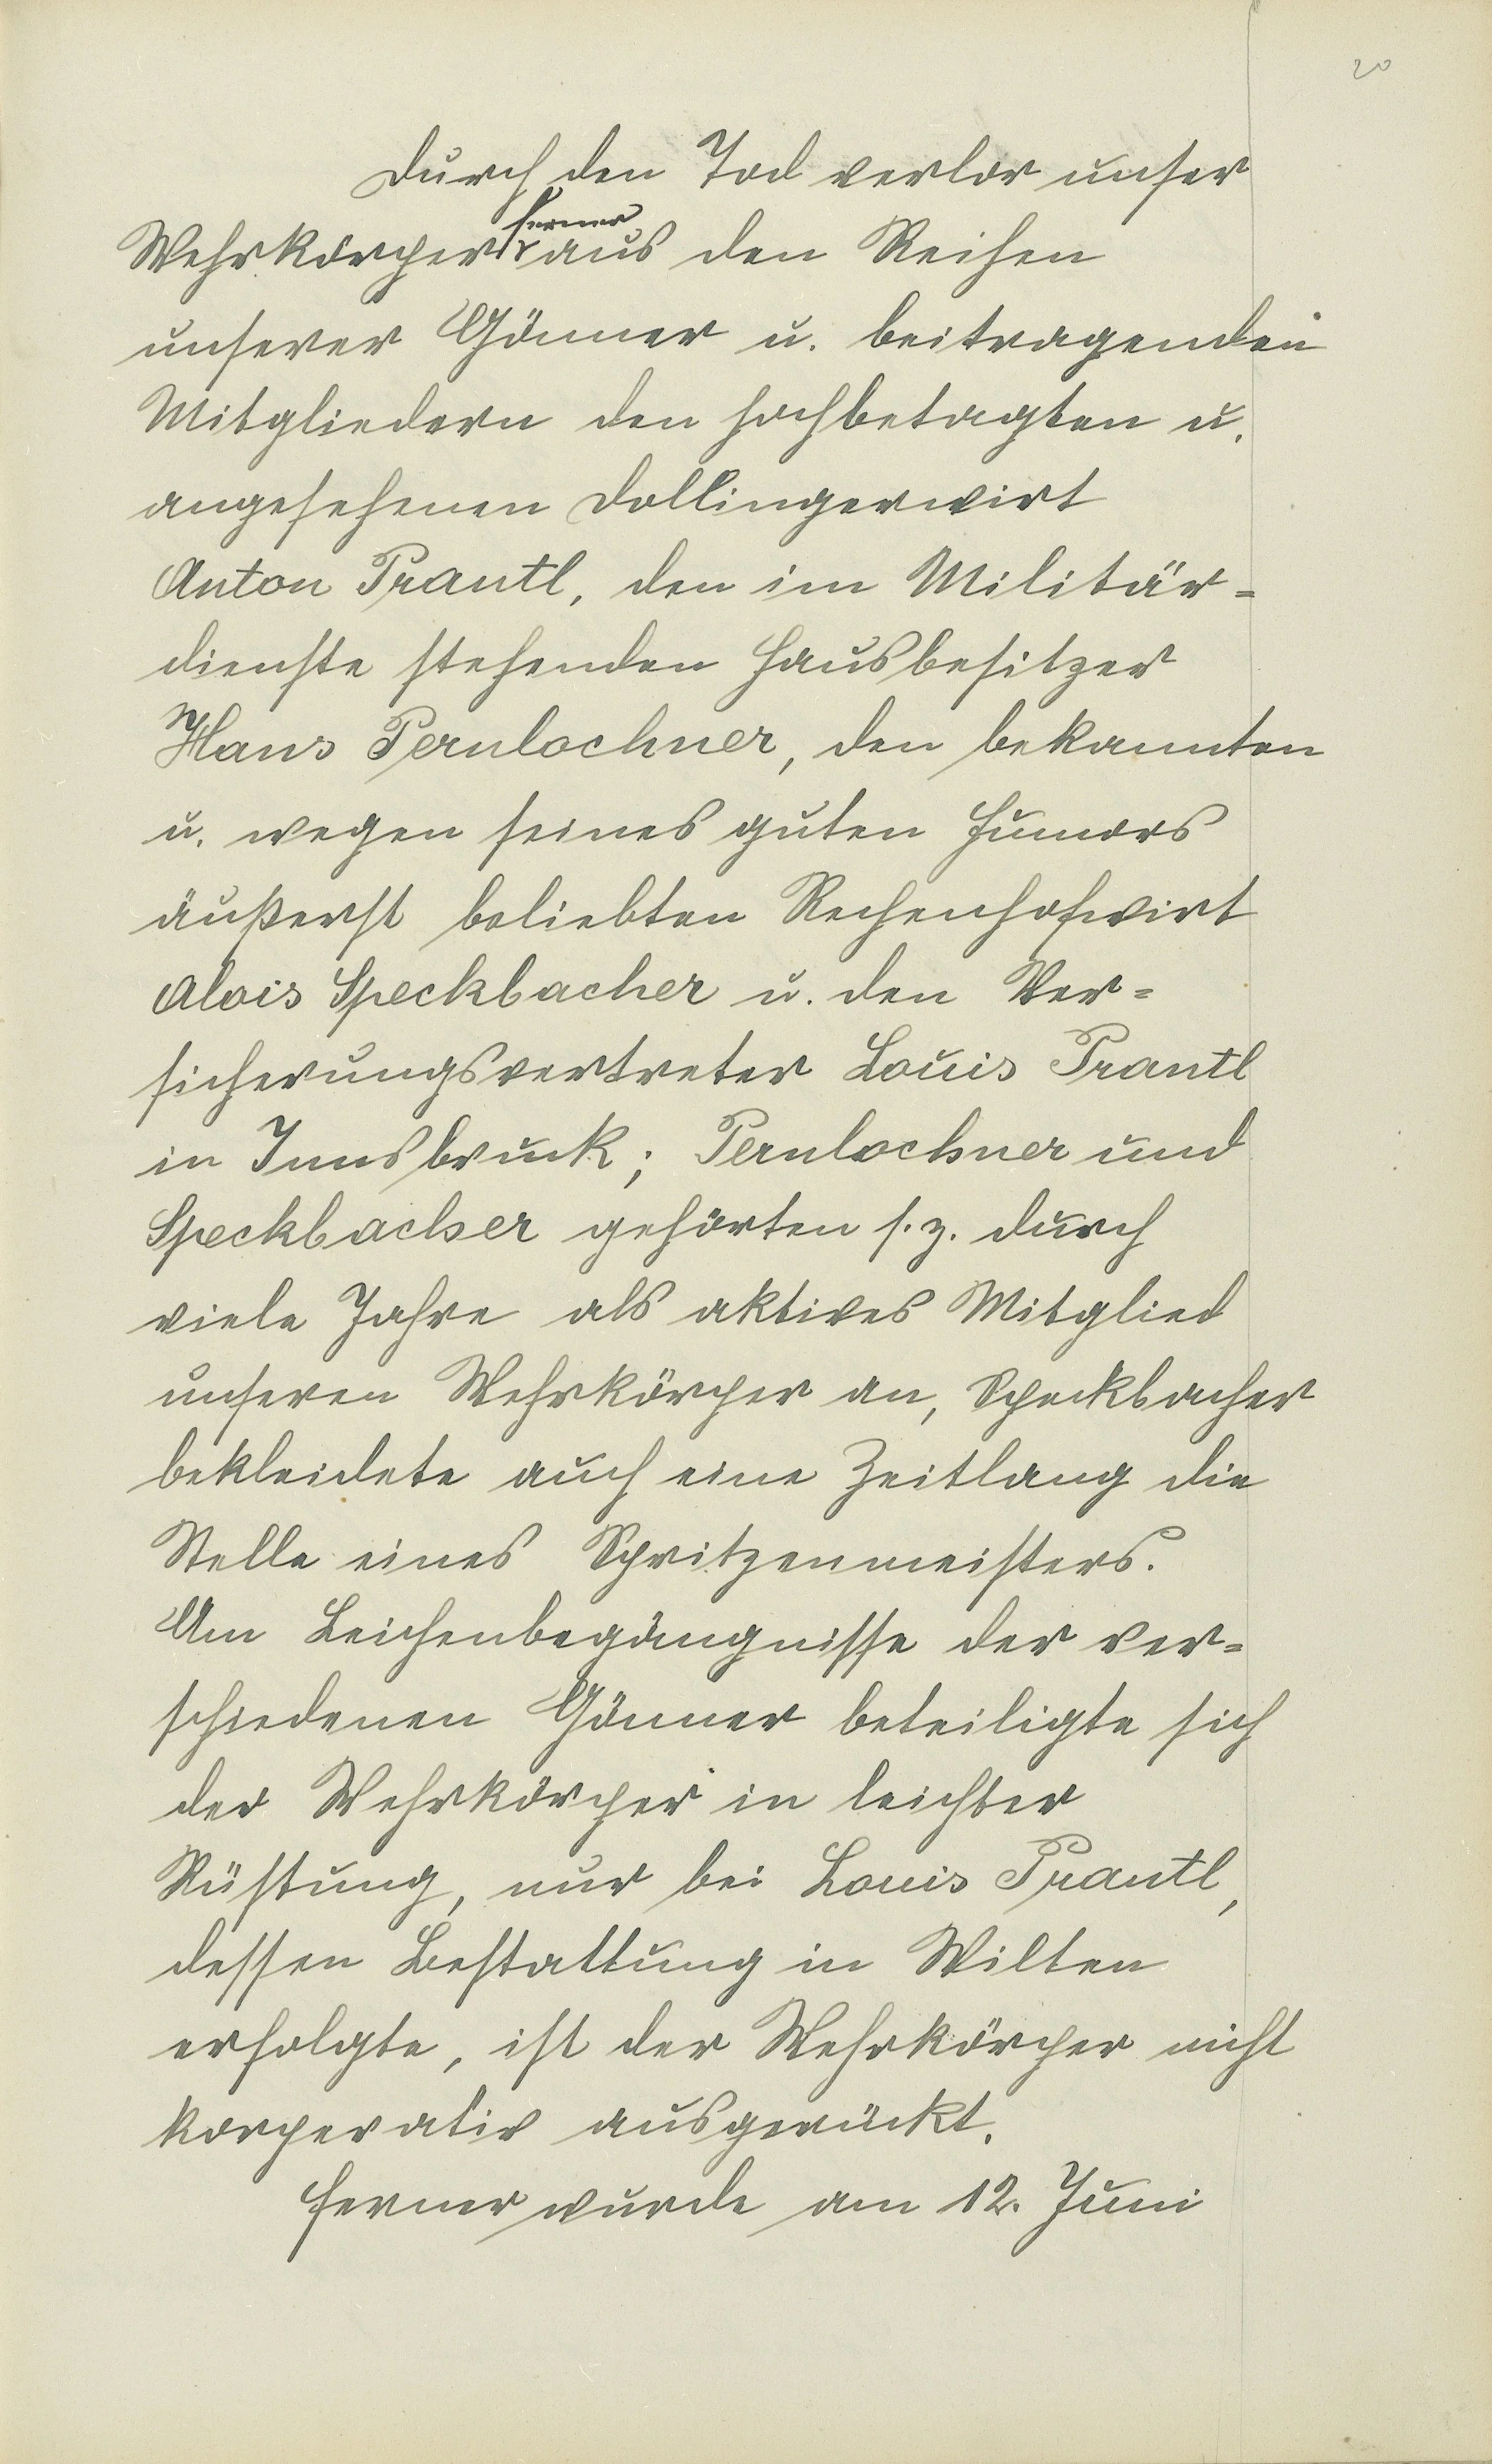 20
Durch den Tod verlor unser
ferner
Wehrkörper aus den Reihen
unserer Gönner u. beitragenden
Mitgliedern den hochbetagten u.
angesehenen Dollingerwirt
Anton Prantl, den im Militär=
dienste stehenden Hausbesitzer
Hans Pernlochner, den bekannten
u. wegen seines guten Humors
äußerst beliebten Rechenhofwirt
Alois Speckbacher u. den Ver=
sicherungsvertreter Louis Prantl
in Innsbruck; Pernlochner und
Speckbacher gehörten s. z. durch
viele Jahre als aktives Mitglied
unseren Wehrkörper an, Speckbacher
bekleidete auch eine Zeitlang die
Stelle eines Spritzenmeisters.
Am Leichenbegängnisse der ver=
schiedenen Gönner beteiligte sich
der Wehrkörper in leichter
Rüstung, nur bei Louis Prantl,
dessen Bestattung in Wilten
erfolgte, ist der Wehrkörper nicht
korperativ ausgerückt.
Ferner wurde am 12. Juni